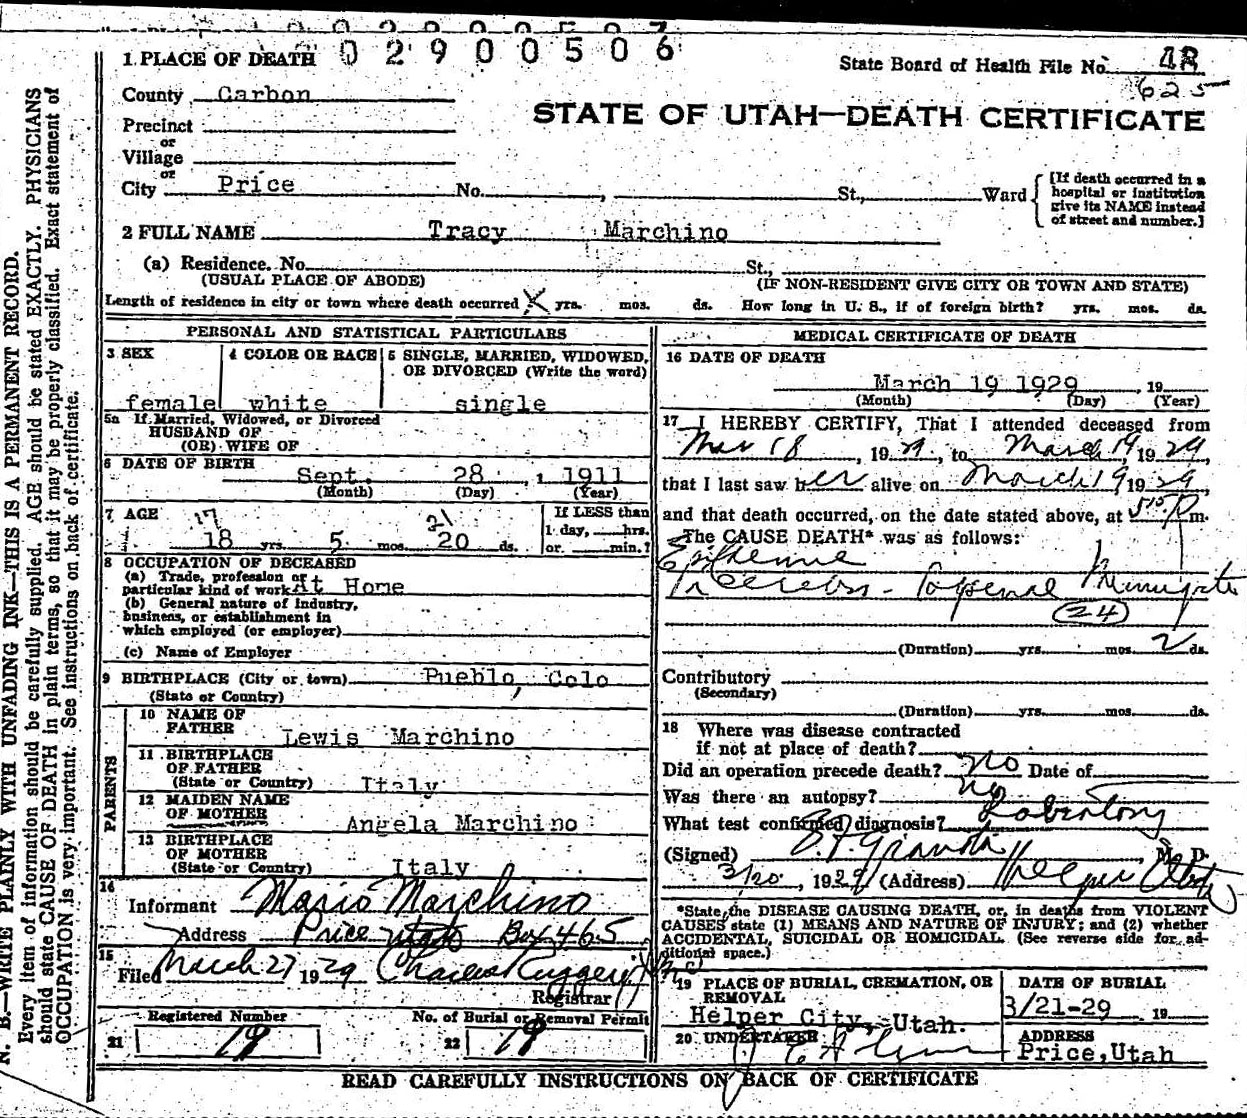 02900506
1 PLACE OF DEATH
State Board of Health File No.
625
County Carbon
STATE OF UTAH—DEATH CERTIFICATE
Precinct
or
Village
or
City Price No. , St., Ward
[If death occurred in a hospital or institution give its NAME instead of street and number.]
2 FULL NAME Tracy Marchino
(a) Residence. No. St.,
(USUAL PLACE OF ABODE) (IF NON-RESIDENT GIVE CITY OR TOWN AND STATE)
Length of residence in city or town where death occurred X yrs. mos. ds. How long in U. S., if of foreign birth? yrs. mos. ds.
PERSONAL AND STATISTICAL PARTICULARS
3 SEX
female
4 COLOR OR RACE
white
5 SINGLE, MARRIED, WIDOWED,
OR DIVORCED (Write the word)
single
5a If Married, Widowed, or Divorced
HUSBAND OF
(OR) WIFE OF
6 DATE OF BIRTH
Sept. 28, 1911
(Month) (Day) (Year)
7 AGE
17 21
18 yrs. 5 mos. 20 ds.
If LESS than
1 day, hrs.
or min.?
8 OCCUPATION OF DECEASED
(a) Trade, profession or
particular kind of work At Home
(b) General nature of industry,
business, or establishment in
which employed (or employer)
(c) Name of Employer
9 BIRTHPLACE (City or town) Pueblo, Colo
(State or Country)
PARENTS
10 NAME OF
FATHER Lewis Marchino
11 BIRTHPLACE
OF FATHER
(State or Country) Italy
12 MAIDEN NAME
OF MOTHER Angela Marchino
13 BIRTHPLACE
OF MOTHER
(State or Country) Italy
14
Informant Mario Marchino
Address Price Utah Box 465
15
Filed March 27 1929 Charles Ruggeri
Registrar
Registered Number
21 19
No. of Burial or Removal Permit
22 19
MEDICAL CERTIFICATE OF DEATH
16 DATE OF DEATH
March 19 1929, 19
(Month) (Day) (Year)
17 I HEREBY CERTIFY, That I attended deceased from
Mar 18, 1929, to March 19 1929,
that I last saw her alive on March 19 1929,
and that death occurred, on the date stated above, at 5 15 P m.
The CAUSE DEATH* was as follows:
(24)
(Duration) yrs. mos. 2 ds.
Contributory
(Secondary)
(Duration) yrs. mos. ds.
18 Where was disease contracted
if not at place of death?
Did an operation precede death? No Date of
Was there an autopsy? No
What test confirmed diagnosis? Laboratory
(Signed) , M. D.
3/20, 1929 (Address) Helper Utah
*State the DISEASE CAUSING DEATH, or, in deaths from VIOLENT
CAUSES state (1) MEANS AND NATURE OF INJURY; and (2) whether
ACCIDENTAL, SUICIDAL OR HOMICIDAL. (See reverse side for ad-
ditional space.)
19 PLACE OF BURIAL, CREMATION, OR
REMOVAL
Helper City, Utah.
DATE OF BURIAL
3/21-29 19
20 UNDERTAKER
ADDRESS
Price, Utah
READ CAREFULLY INSTRUCTIONS ON BACK OF CERTIFICATE
N. B.—WRITE PLAINLY WITH UNFADING INK—THIS IS A PERMANENT RECORD.
Every item of information should be carefully supplied. AGE should be stated EXACTLY. PHYSICIANS
should state CAUSE OF DEATH in plain terms, so that it may be properly classified. Exact statement of
OCCUPATION is very important. See instructions on back of certificate.